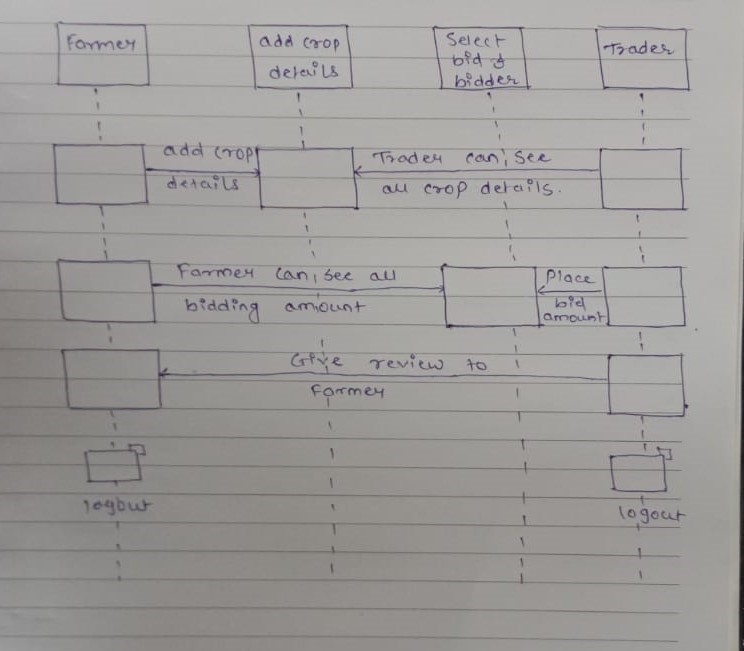 Farmer
add crop
details
Select
bid &
bidder
Trader
add crop
details
Trader can see
all crop details.
Farmer can see all
bidding amount
Place
bid
amount
Give review to
Farmer
logout
logout